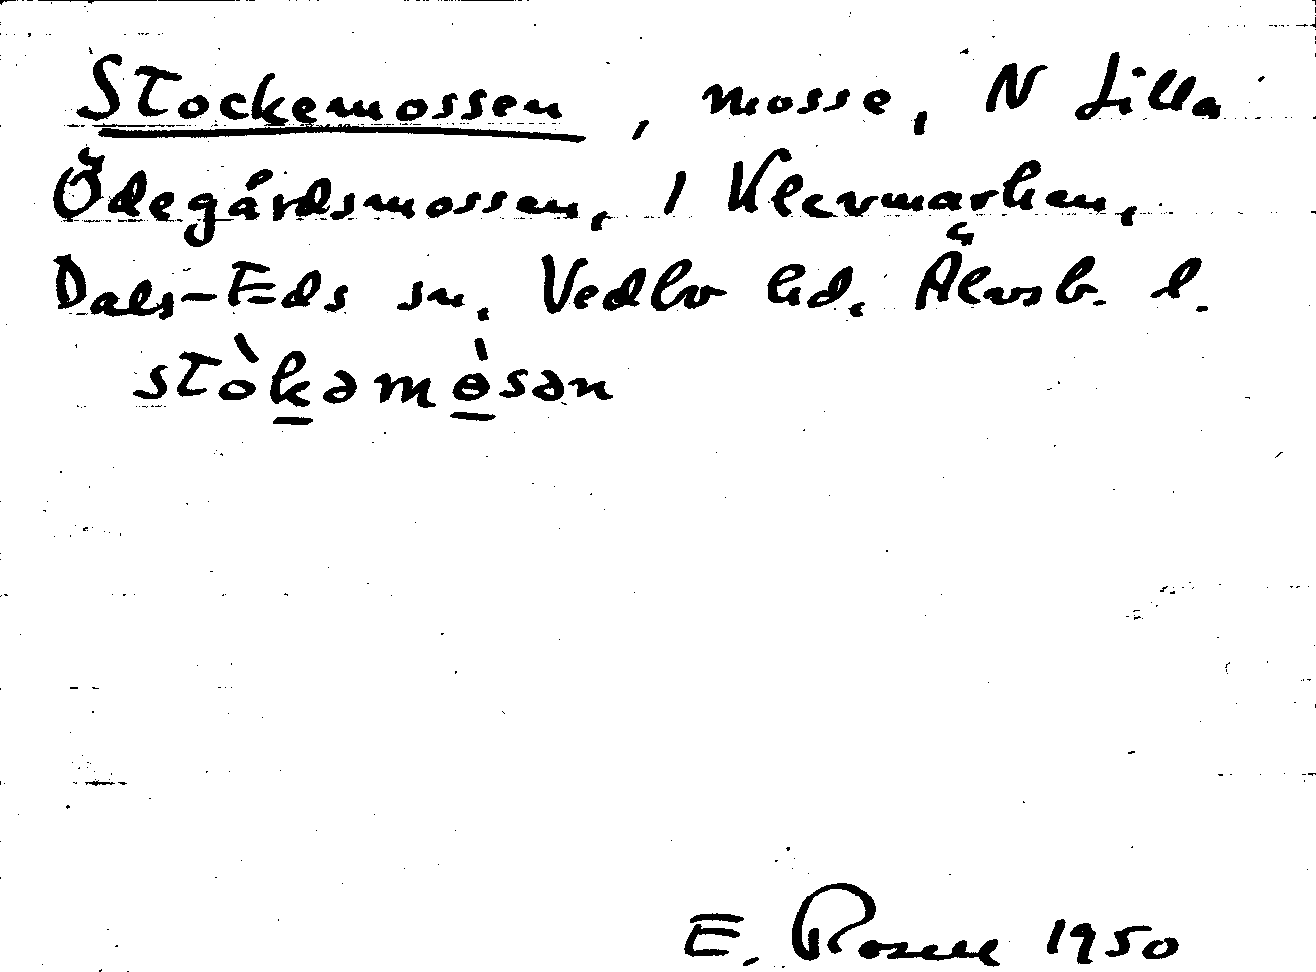 Stockemossen, mosse, N Lilla
Ödegårdsmossen, 1 Klevmarken,
Dals-Eds sn. Vedbo hd. Älvsb. l.
stòkəmɵ̀sən
E. Rosell 1950